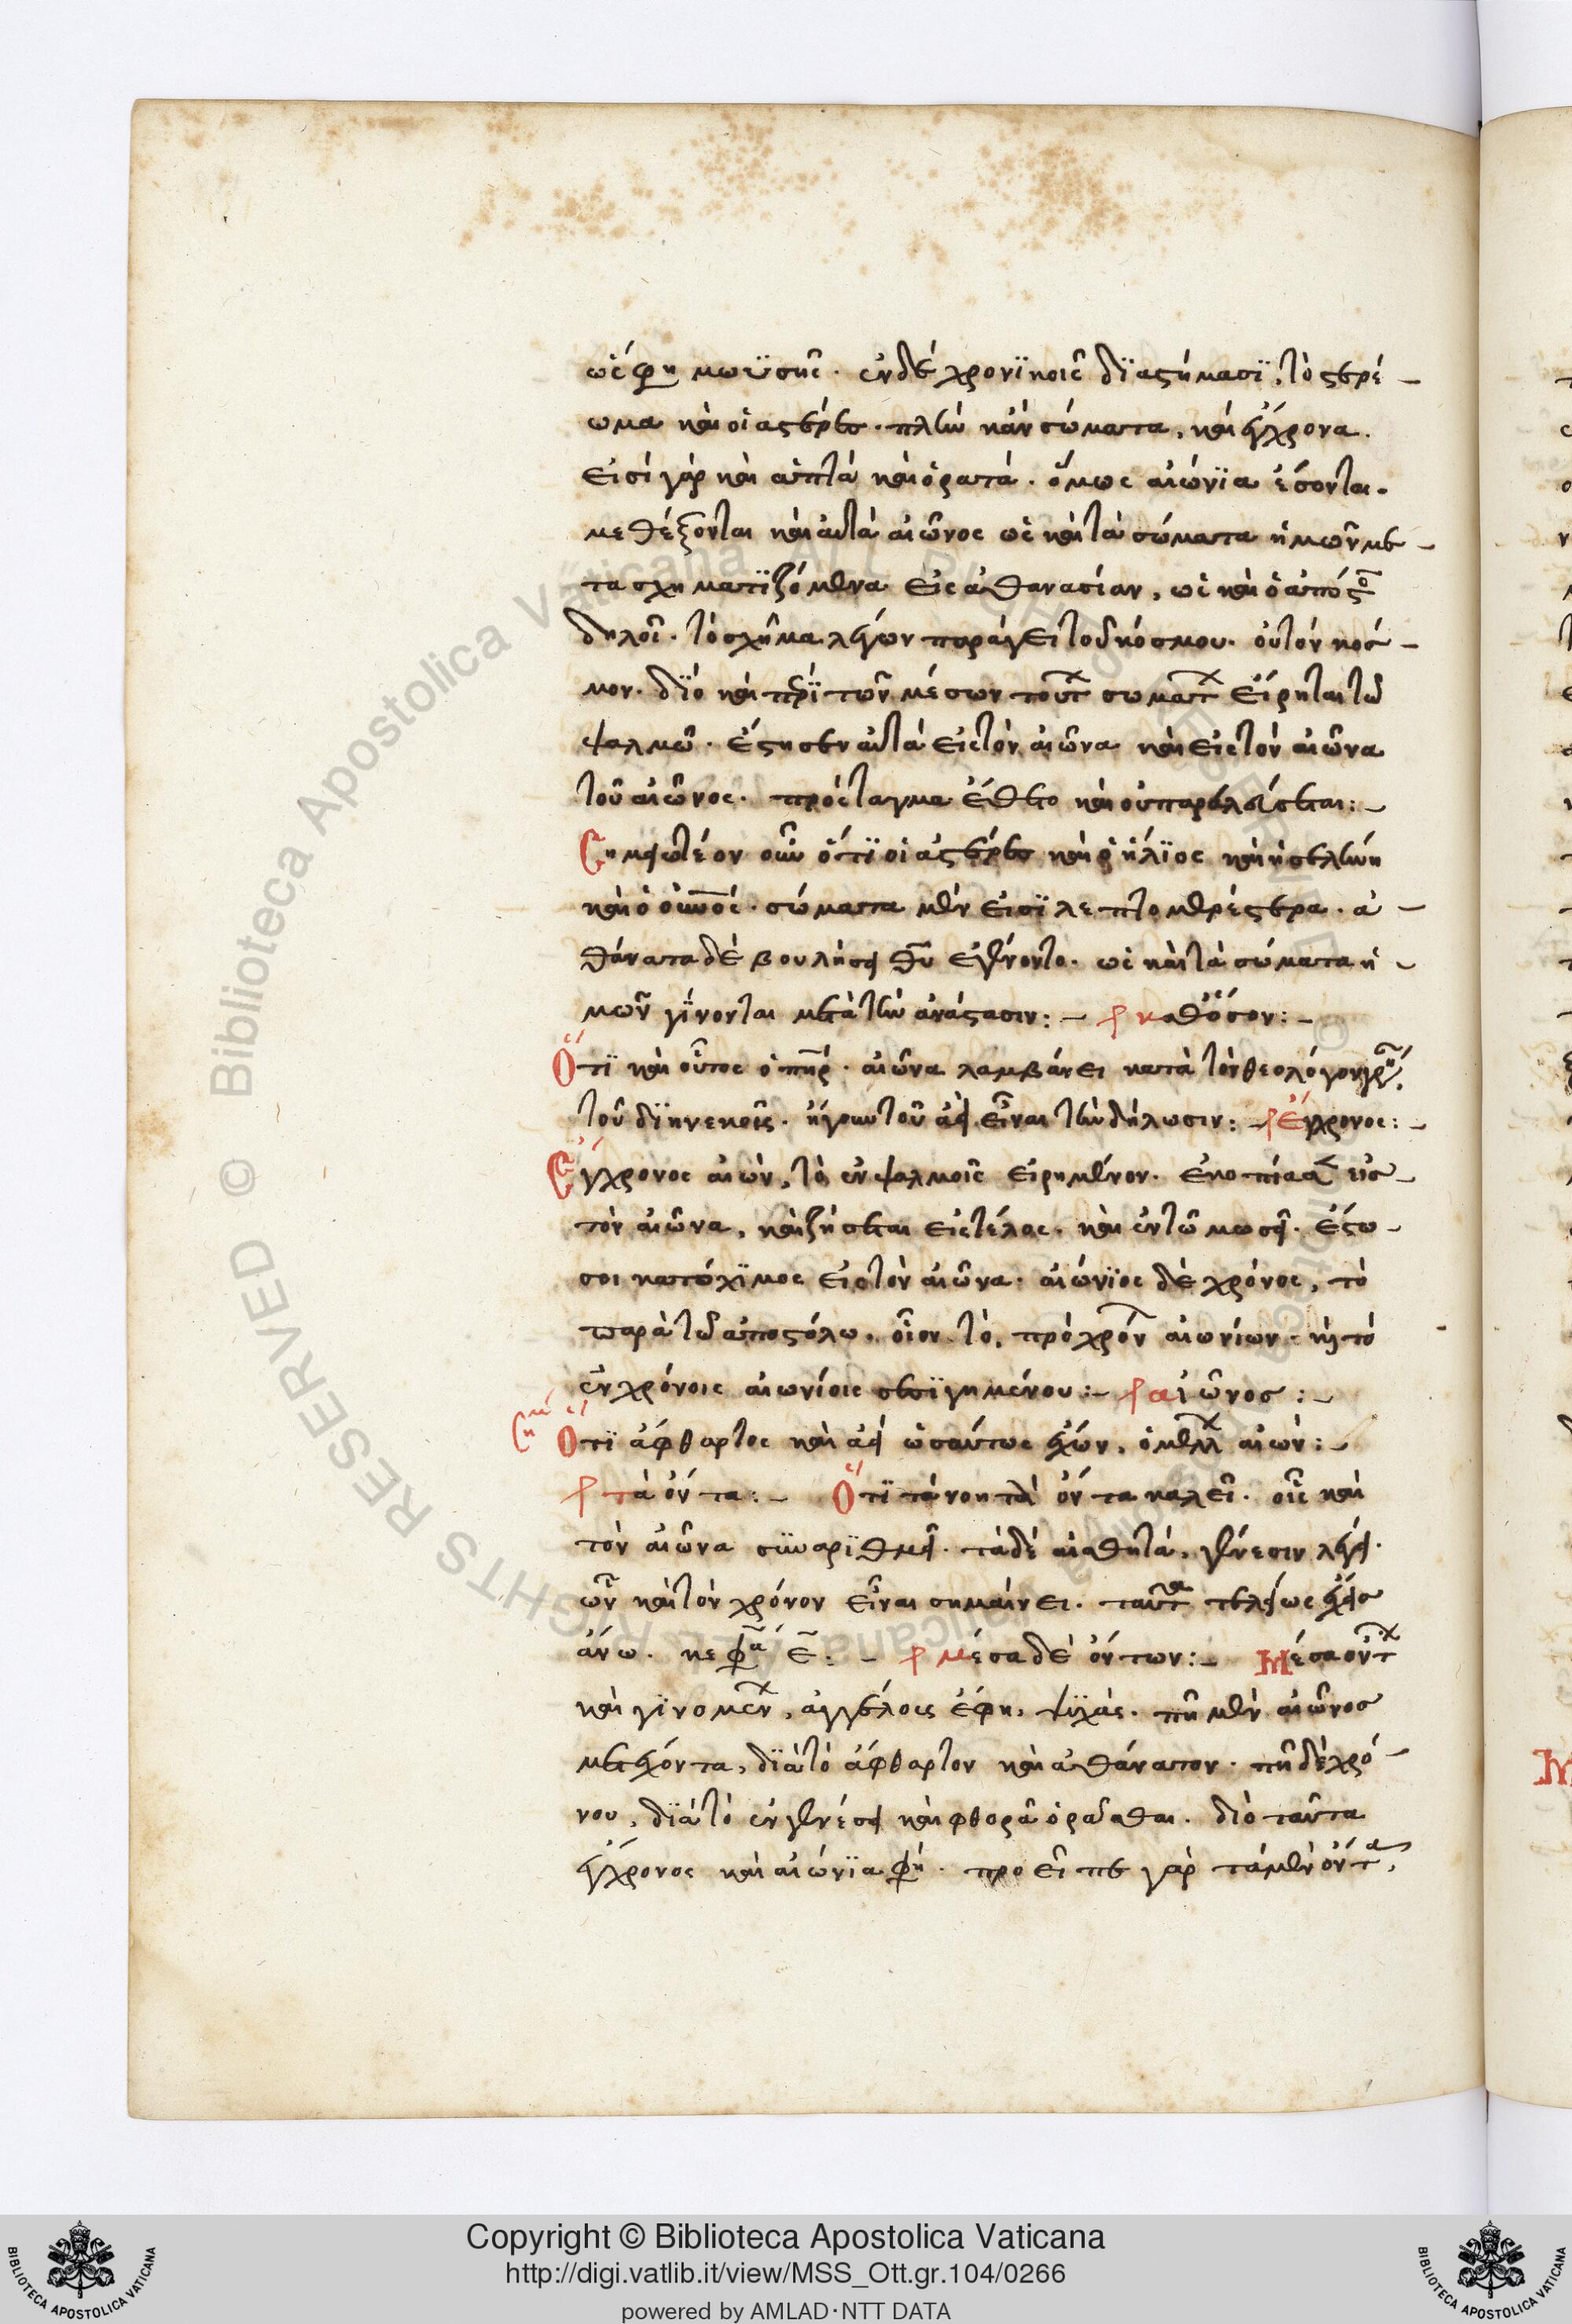 ὡς ἔφη μωϋσῆς. ἐν δὲ χρονϊκοῖς δϊαστήμασϊ, τὸ στερέ-
ωμα καὶ οἱ ἀστέρες. πλὴν κἂν σώματα, καὶ ἔγχρονα.
εἰσὶ γὰρ καὶ ἁπτὰ καὶ ὁρατά. ὅμως αἰώνϊα ἔσονται.
μεθέξονται καὶ αὐτὰ αἰῶνος ὡς καὶ τὰ σώματα ἡμῶν με-
τασχηματϊζόμενα εἰς ἀθανασίαν, ὡς καὶ ὁ ἀπόστο
δηλοῖ. τὸ σχῆμα λέγων παράγει τοῦ κόσμου. οὐ τὸν κόσ-
μον. δϊὸ καὶ περὶ τῶν μέσων τούτων σωμάτων εἴρηται τῶ
ψαλμῶ. ἔστησεν αὐτὰ εἰς τὸν αἰῶνα καὶ εἰς τὸν αἰῶνα
τοῦ αἰῶνος. πρόσταγμα ἔθετο καὶ οὐ παρελεύσεται:-
Σημειωτέον οὖν ὅτϊ οἱ ἀστέρες καὶ ὁ ἥλϊος καὶ ἡ σελήνη
καὶ ὁ οὐνός. σώματα μὲν εἰσϊ λεπτομερέστερα. ἀ-
θάνατα δὲ βουλήσει θυ ἐγένοντο. ὡς καὶ τὰ σώματα ἡ-
μῶν γίνονται μετὰ τὴν ἀνάστασιν:- καθ' ὅσον:-
Ὅτϊ καὶ οὗτος ὁ πηρ. αἰῶνα λαμβάνει κατὰ τὸν θεολόγον γρη.
τοῦ δϊηνεκοῦς. ἤγουν τοῦ ἀεὶ εἶναι τὴν δήλωσιν:- ἔγχρονος:-
Ἔγχρονος αἰὼν, τὸ ἐν ψαλμοῖς εἰρημένον. ἐκοπίασεν εἰς
τὸν αἰῶνα, καὶ ζήσεται εἰς τέλος. καὶ ἐν τῶ μωσεῖ. ἔστω
σοι κατόχϊμος εἰς τὸν αἰῶνα. αἰώνϊος δὲ χρόνος, τὸ
παρὰ τῶ ἀποστόλω. οἷον τὸ, πρὸ χρόνων αἰωνίων. καὶ τὸ
ἐν χρόνοις αἰωνίοις σεσϊγημένου:- αἰῶνος:-
Ση Ὅτϊ ἄφθαρτος καὶ ἀεὶ ὡσαύτως ἔχων, ὁ μέλλων αἰών:-
τὰ ὄντα:- Ὅτϊ τὰ νοητὰ ὄντα καλεῖ. οἷς καὶ
τὸν αἰῶνα συναρϊθμεῖ. τὰ δὲ αἰσθητὰ, γένεσιν λέγει.
ὧν καὶ τὸν χρόνον εἶναι σημαίνει. ταῦτα τελείως ἔχεις
ἄνω. κεφα ε:- μέσα δὲ ὄντων:- Μέσα ὄντων
καὶ γϊνομένων, ἀγγέλους ἔφη, ψυχάς. πῆ μὲν αἰῶνος
μετέχοντα, δϊὰ τὸ ἄφθαρτον καὶ ἀθάνατον. πῆ δὲ χρό-
νου, δϊὰ τὸ ἐν γενέσει καὶ φθορᾶ ὁρᾶσθαι. διὸ ταῦτα
ἔγχρονος καὶ αἰώνϊα φη. προεῖπε γὰρ τὰ μὲν ὄντα,
Copyright © Biblioteca Apostolica Vaticana
http://digi.vatlib.it/view/MSS_Ott.gr.104/0266
powered by AMLAD·NTT DATA